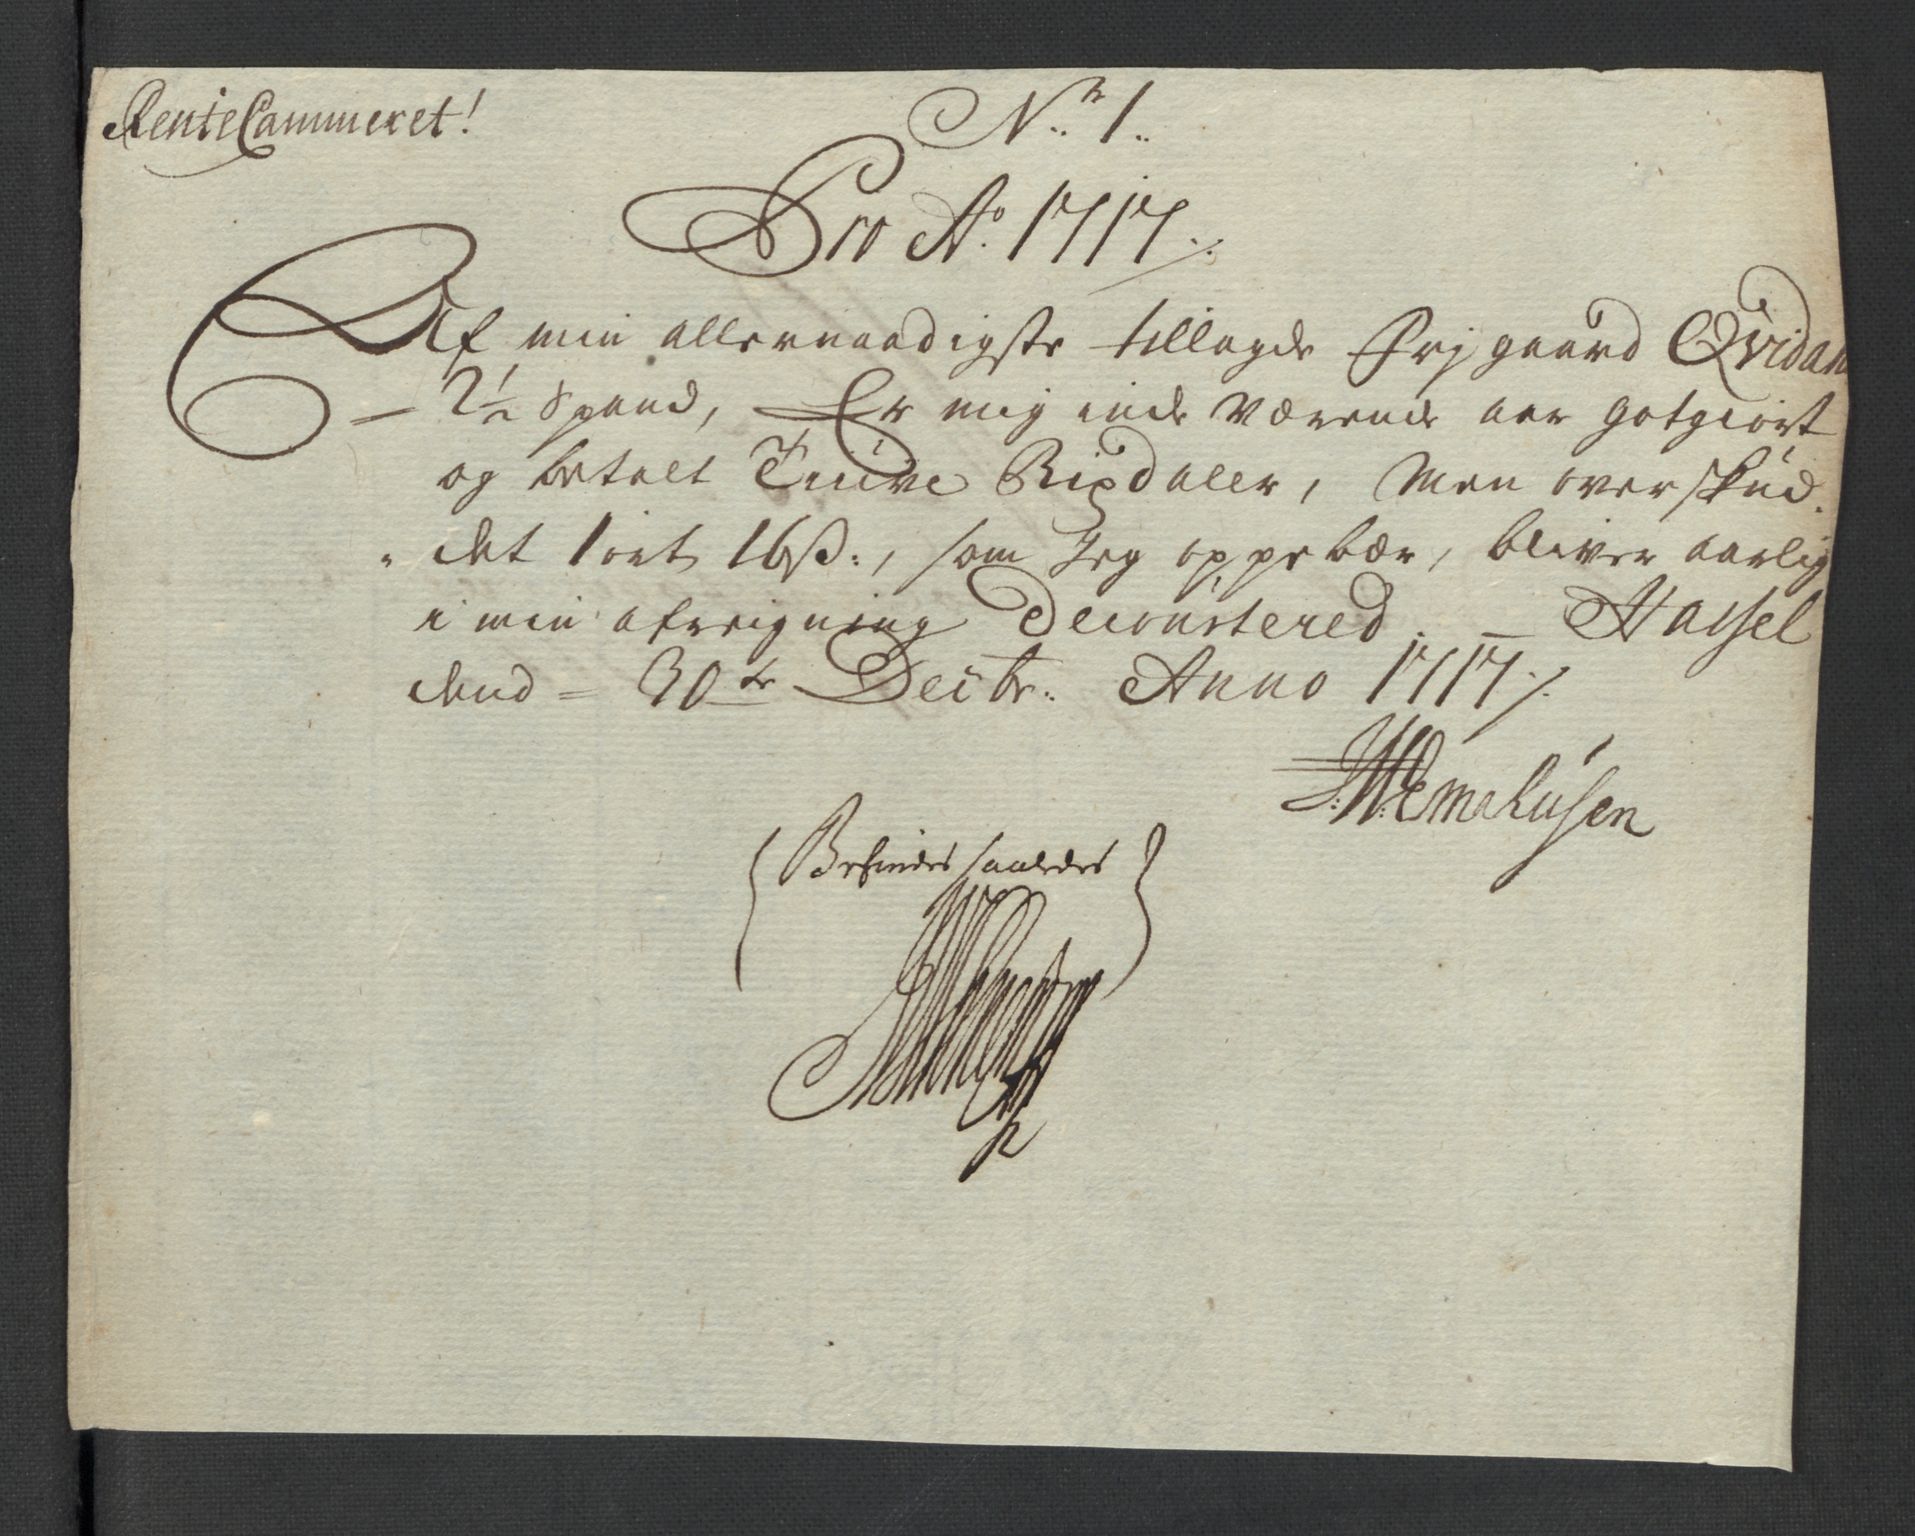 RenteCammeret!
No. 1.
Pro Ao. 1717.
Af min allernaadigste tillagde Frjgaard Qvidan
2½ Spand, Er mig inde Værende aar gotgiort
og betalt Tuive Rixdaler, Men overskud,
det 1 ort 16 ß:, som Jeg oppebær, bliver aarlig
i min afreigning Decourtered. Hassel
dend 30te Decbr. Anno 1717.
Befindes saaledes